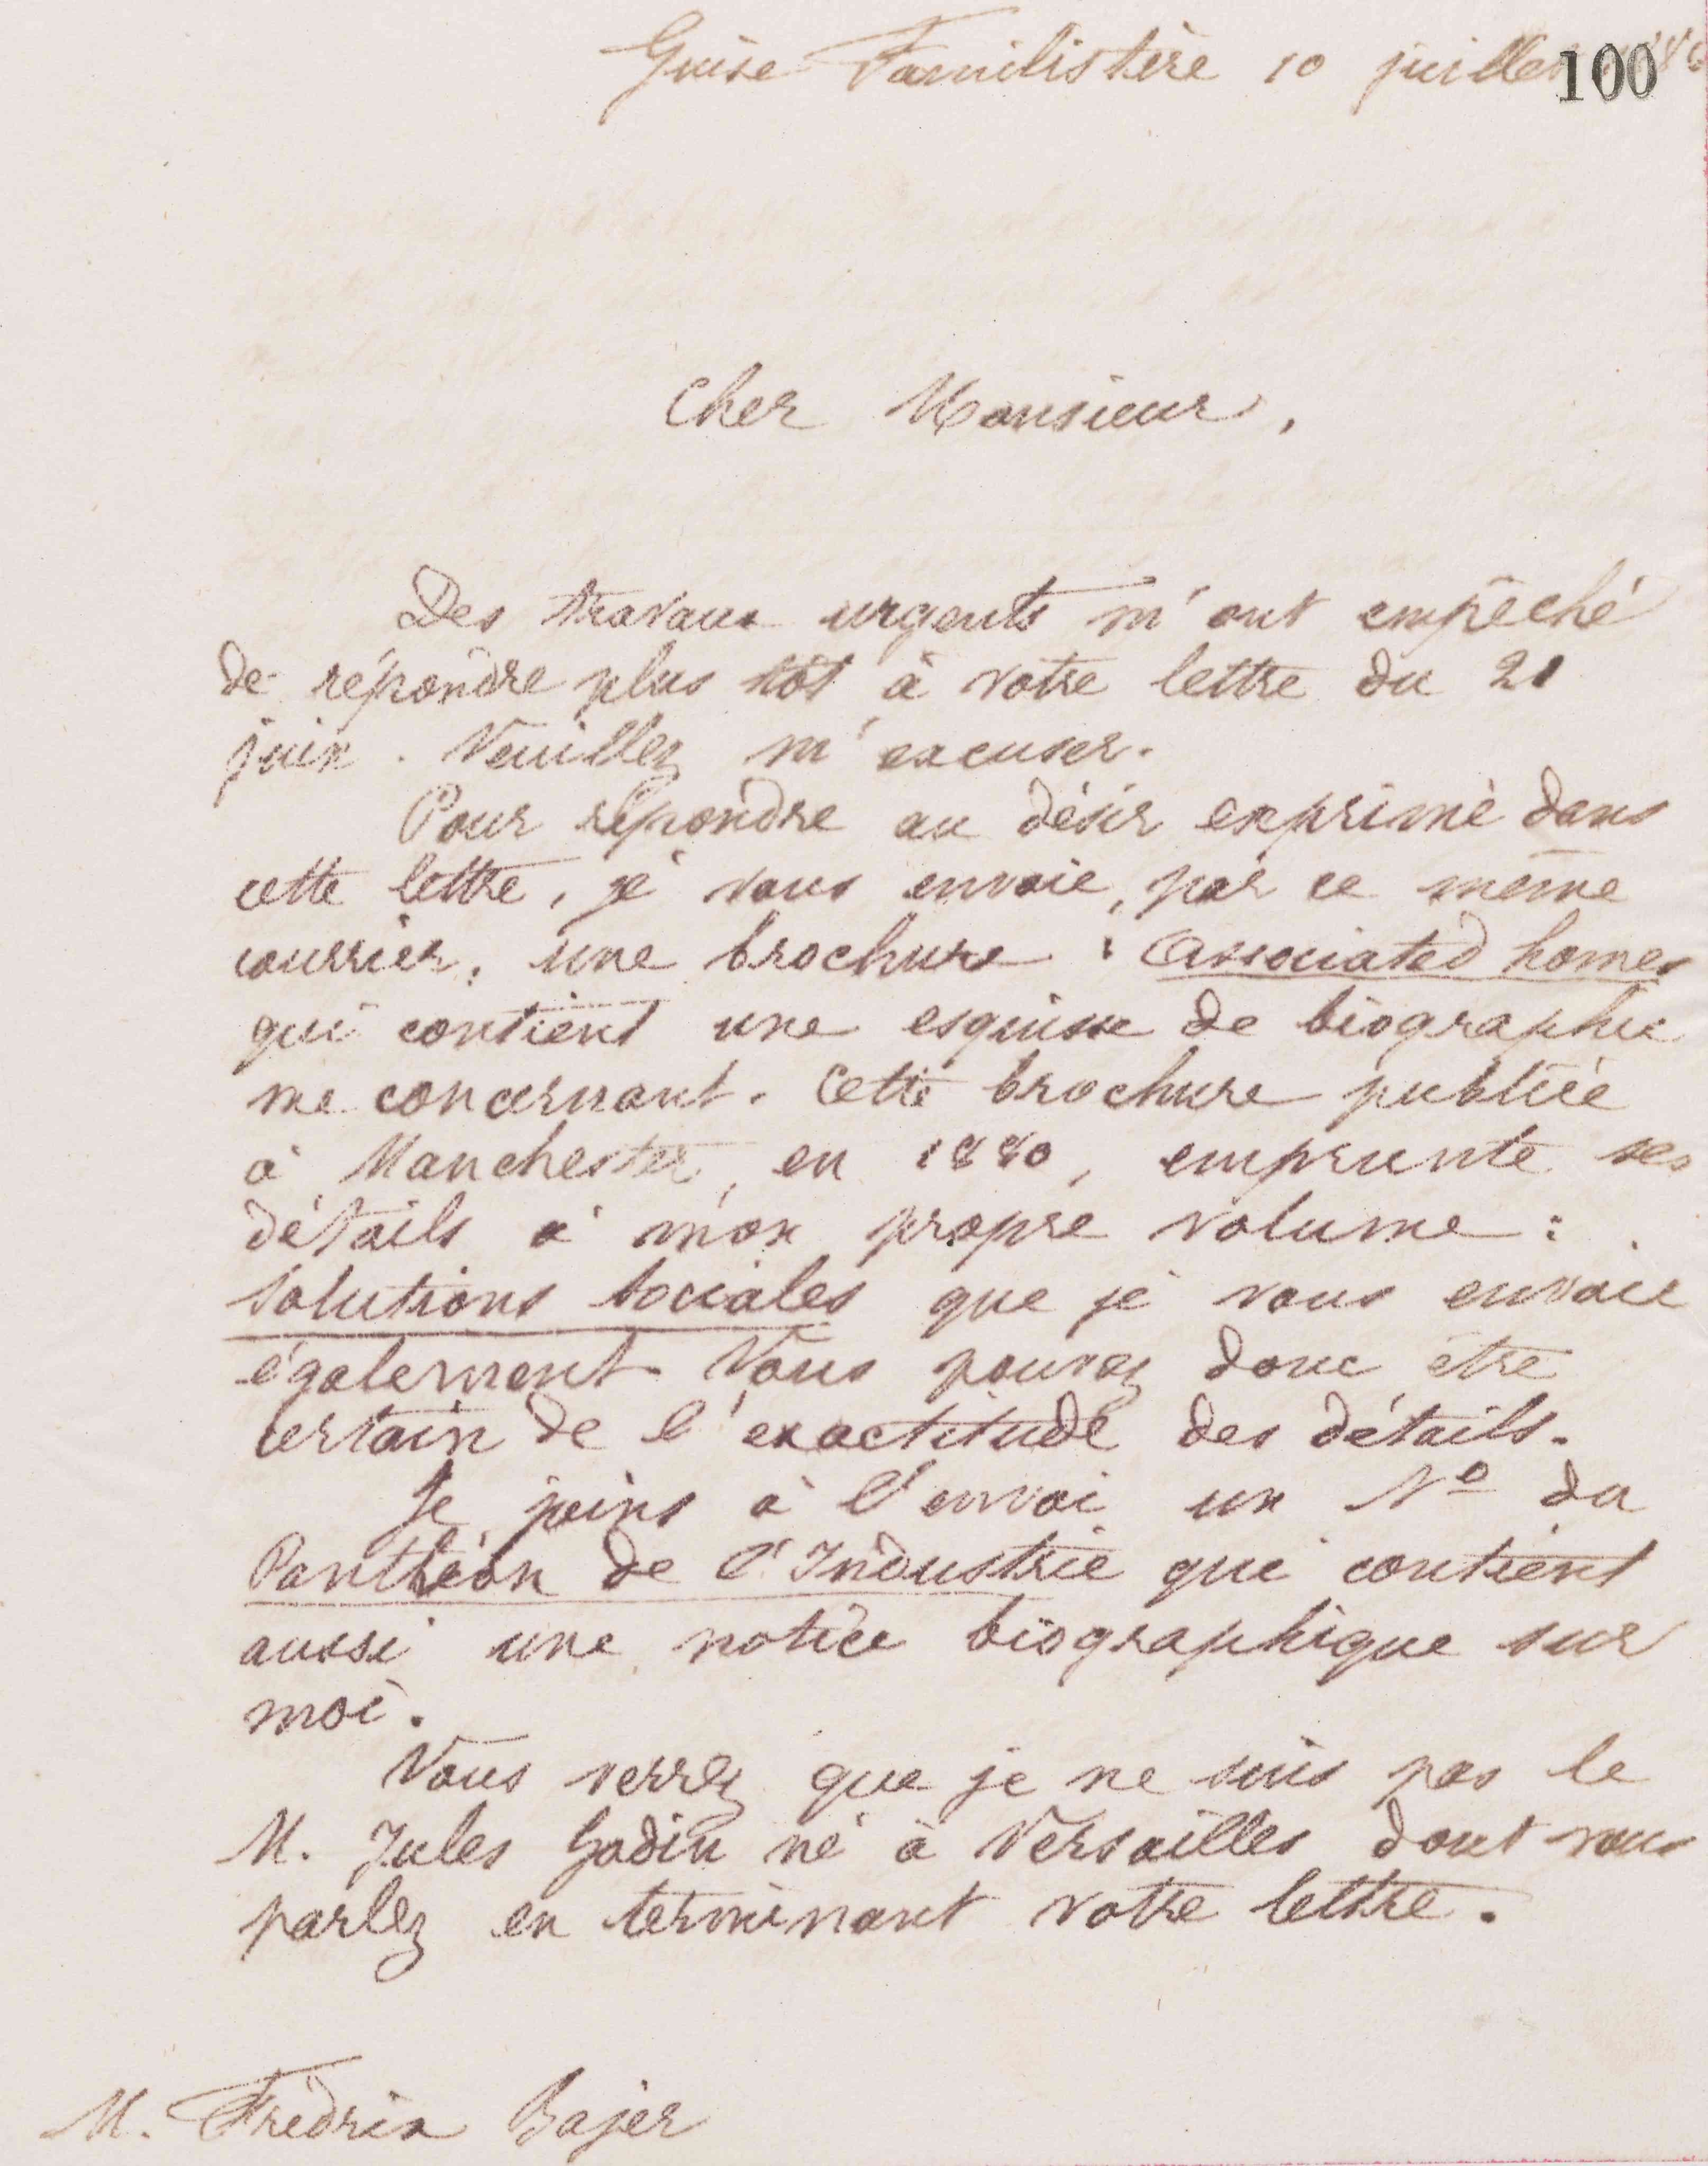 Guise Familistère 10 juillet
100
Cher Monsieur,
Des travaux urgents m'ont empêché
de répondre plus tôt à votre lettre du 21
juin. Veuillez m'excuser.
Pour répondre au désir exprimé dans
cette lettre, je vous envoie, par ce même
courrier, une brochure : Associated homes
qui contient une esquisse de biographie
me concernant. Cette brochure publiée
à Manchester, en 1880, emprunte ses
détails à mon propre volume :
Solutions sociales que je vous envoie
également. Vous pouvez donc être
certain de l'exactitude des détails.
Je joins à l'envoi un No du
Panthéon de l'Industrie qui contient
aussi une notice biographique sur
moi.
Vous verrez que je ne suis pas le
M. Jules Godin né à Versailles dont vous
parlez en terminant votre lettre.
M. Frédrix Bajer